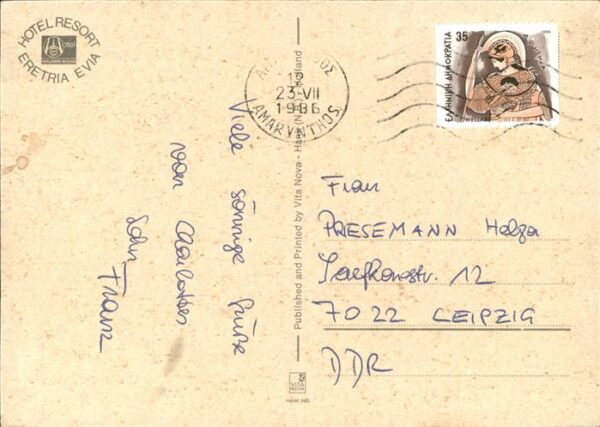 HOTEL RESORT
Hotel
ERETRIA EVIA
ΑΜΑΡΥΝΘΟΣ
12
23-VII
1986
AMARYNTHOS
35
ΕΛΛΗΝΙΚΗ ΔΗΜΟΚΡΑΤΙΑ
Viele sonnige Grüße
von
Sohn Franz
Published and Printed by Vita Nova - Haarlem (N.H.) Holland
VITA NOVA
Frau
PRESEMANN Helga
12
7022 LEIPZIG
DDR